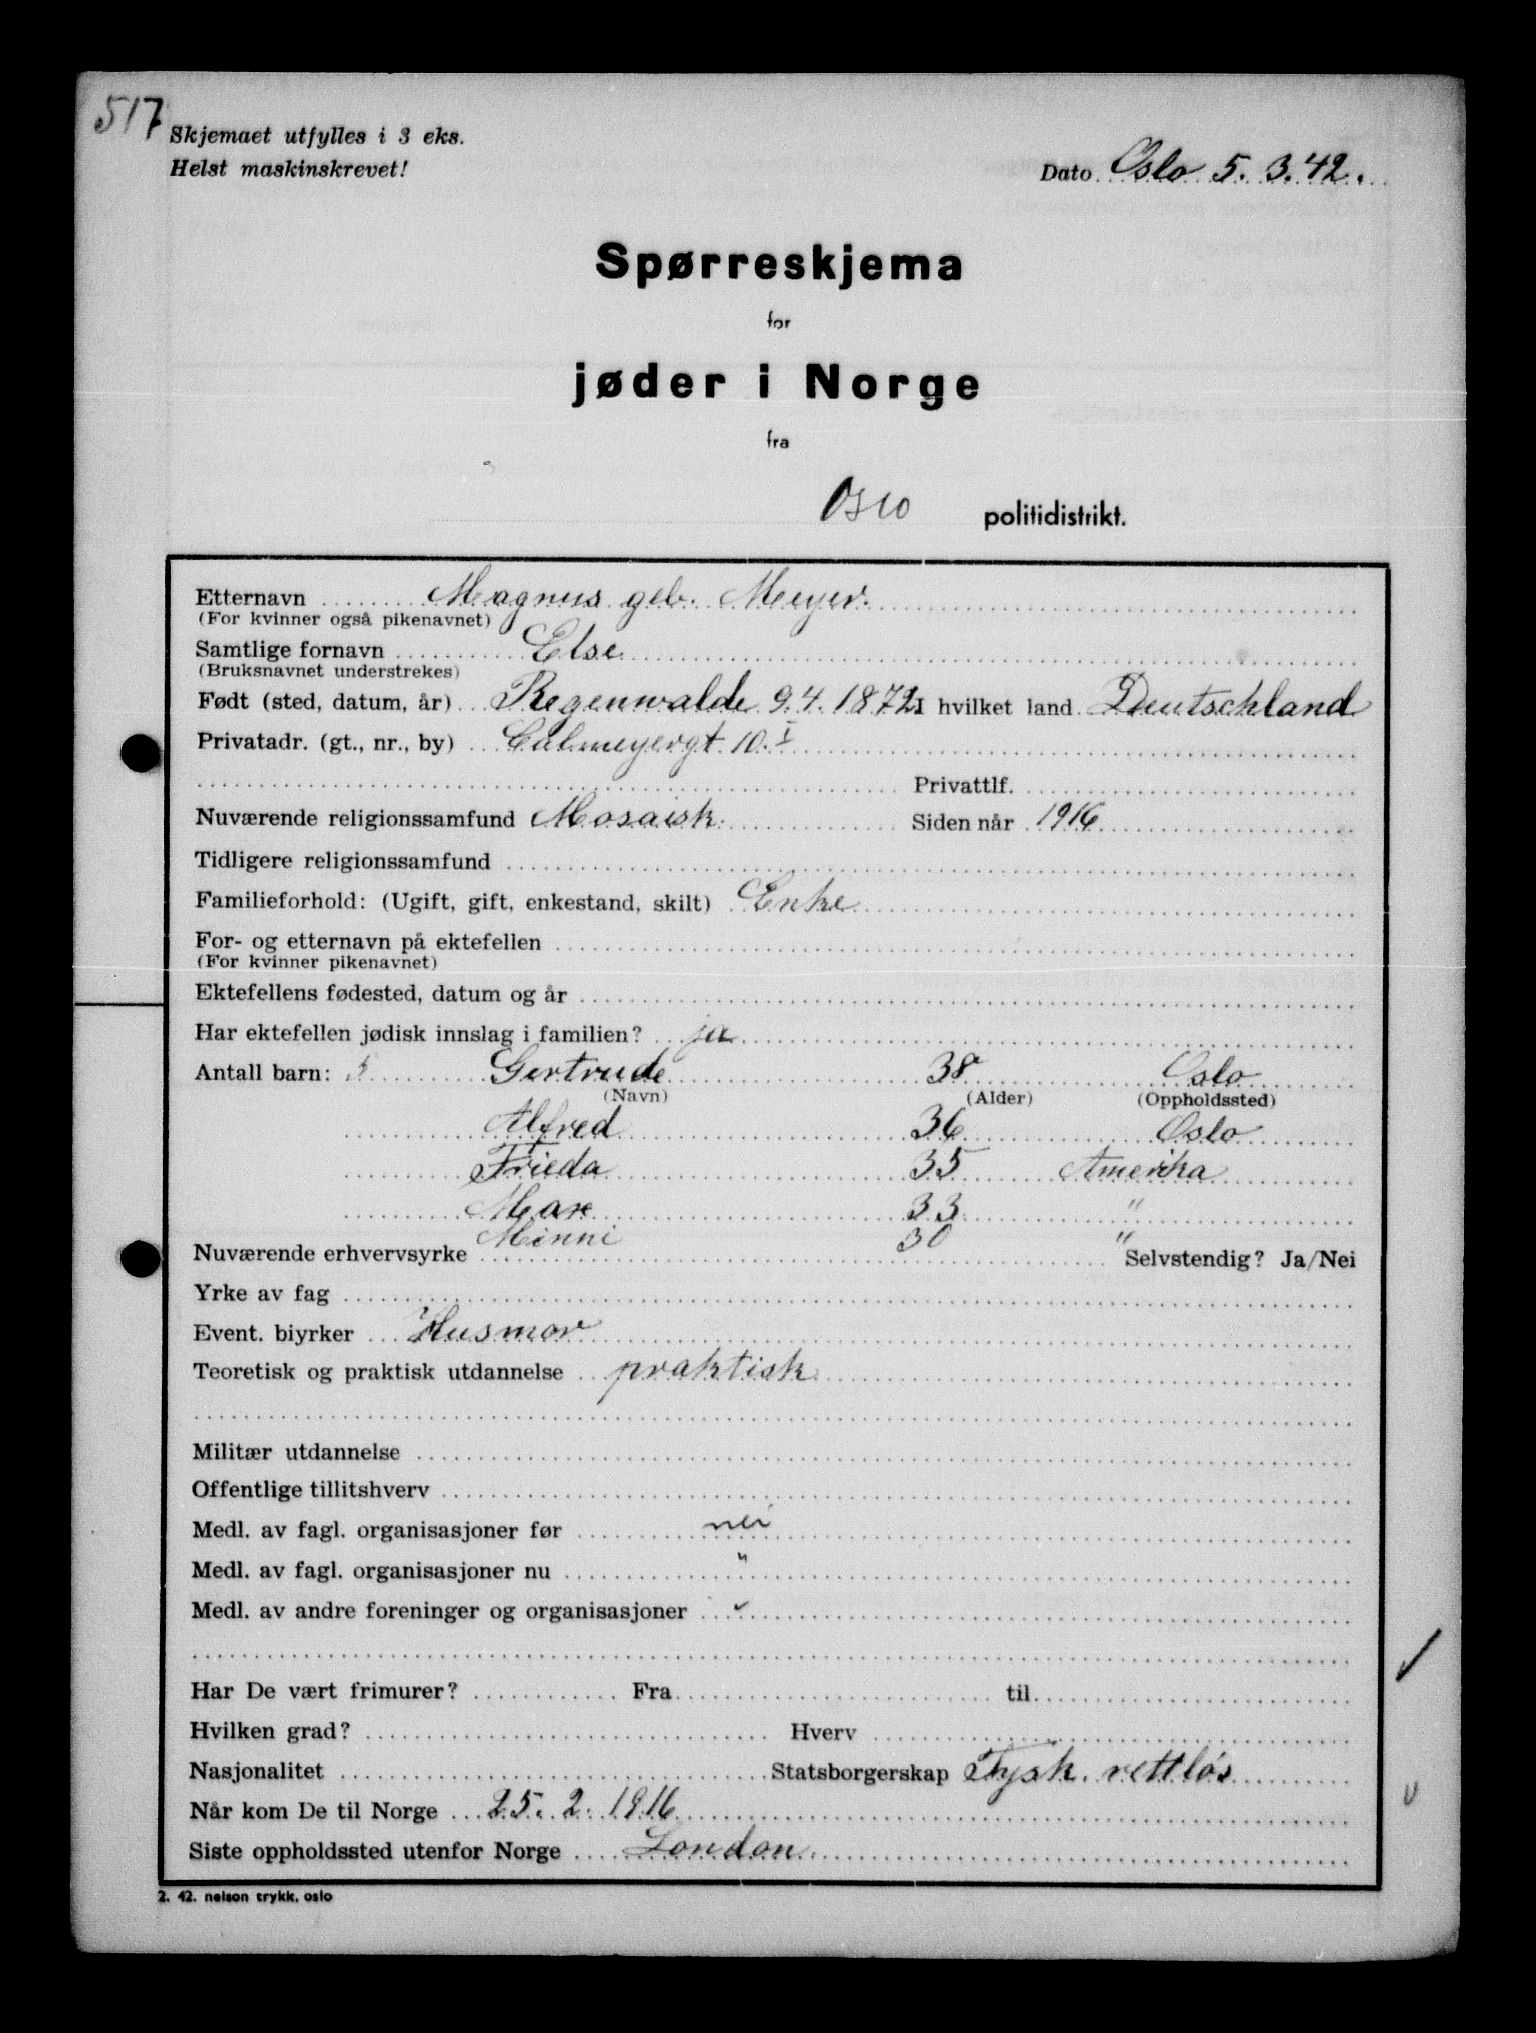 517
Skjemaet utfylles i 3 eks.
Helst maskinskrevet!
Dato Oslo 5. 3. 42.
Spørreskjema
for
jøder i Norge
fra
Oslo politidistrikt.
Etternavn Magnus geb. Meyer.
(For kvinner også pikenavnet)
Samtlige fornavn Else
(Bruksnavnet understrekes)
Født (sted, datum, år) Regenwalde 9.4.1872 I hvilket land Deutschland
Privatadr. (gt., nr., by) Calmeyergt 10. I
Privattlf.
Nuværende religionssamfund Mosaisk. Siden når 1916
Tidligere religionssamfund
Familieforhold: (Ugift, gift, enkestand, skilt) Enke
For- og etternavn på ektefellen
(For kvinner pikenavnet)
Ektefellens fødested, datum og år
Har ektefellen jødisk innslag i familien? ja
Antall barn: 5 Gertrude 38 Oslo
(Navn) (Alder) (Oppholdssted)
Alfred 36 Oslo
Frieda 35 Amerika
Max 33 "
Minni 30 "
Nuværende erhvervsyrke Selvstendig? Ja/Nei
Yrke av fag
Event. biyrker Husmor
Teoretisk og praktisk utdannelse praktisk
Militær utdannelse
Offentlige tillitshverv
Medl. av fagl. organisasjoner før nei
Medl. av fagl. organisasjoner nu "
Medl. av andre foreninger og organisasjoner "
Har De vært frimurer? Fra til
Hvilken grad? Hverv
Nasjonalitet Statsborgerskap Tysk. rettløs
Når kom De til Norge 25. 2. 1916
Siste oppholdssted utenfor Norge London
2. 42. nelson trykk, oslo